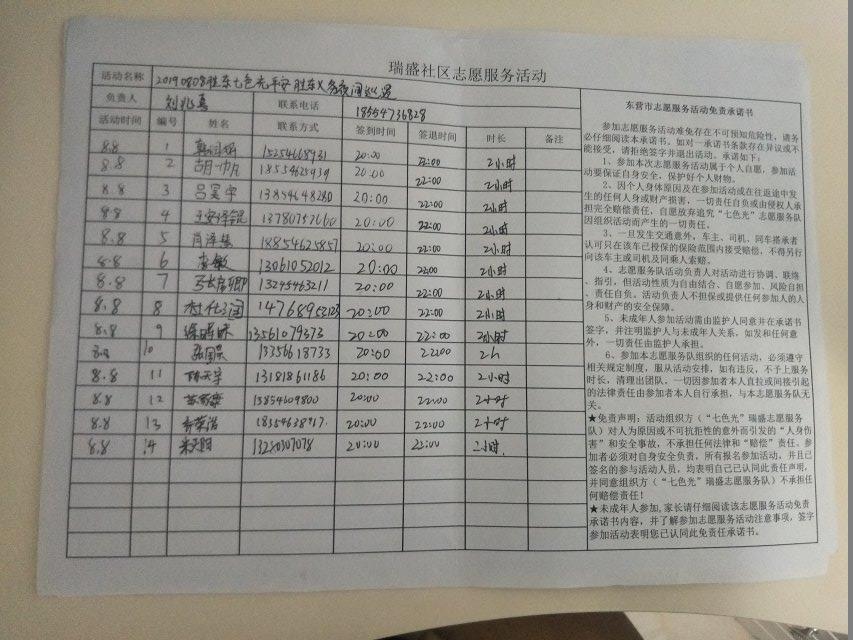 瑞盛社区志愿服务活动
活动名称 20190808胜东七色光平安胜东义务夜间巡逻
负责人 刘兆嘉 联系电话 18554736828
活动时间 编号 姓名 联系方式 签到时间 签退时间 时长 备注
8.8 1 15254668931 20:00 22:00 2小时
8.8 2 胡一帆 18554825939 20:00 22:00 2小时
8.8 3 吕昊宇 13854648280 20:00 22:00 2小时
8.8 4 13780757660 20:00 22:00 2小时
8.8 5 肖泽慧 18854625857 20:00 22:00 2小时
8.8 6 李敏 13061052012 20:00 22:00 2小时
8.8 7 13245463211 20:00 22:00 2小时
8.8 8 14768953123 20:00 22:00 2小时
8.8 9 徐晴 13561079373 20:00 22:00 2小时
8.8 10 张国 13356618733 20:00 22:00 2h
8.8 11 陈天宇 13181861186 20:00 22:00 2小时
8.8 12 13854609800 20:00 22:00 2小时
8.8 13 18354638717 20:00 22:00 2小时
8.8 14 13280307078 20:00 22:00 2小时
东营市志愿服务活动免责承诺书
参加志愿服务活动难免存在不可预知危险性，请务
必仔细阅读本承诺书。如对一承诺书条款存在异议或不
能接受，请拒绝签字并退出活动。承诺如下：
1、参加本次志愿服务活动属于个人自愿，参加活
动要保证自身安全，保护好个人财物。
2、因个人身体原因及在参加活动或在往返途中发
生的任何人身或财产损害，一切责任自负或由侵权人承
担完全赔偿责任，自愿放弃追究“七色光”志愿服务队
因组织活动而产生的一切责任。
3、一旦发生交通意外，车主、司机、同车搭乘者
认可只在该车已投保的保险范围内接受赔偿，不得另行
向该车主或司机及同乘人索赔。
4、志愿服务队活动负责人对活动进行协调、联络
、指引，但活动性质为自由结合、自愿参加、风险自担
、责任自负。活动负责人不担保或提供任何参加人的人
身和财产的安全保障。
5、未成年人参加活动需由监护人同意并在承诺书
签字，并注明监护人与未成年人关系，如发和任何意
外，一切责任由监护人承担。
6、参加本志愿服务队组织的任何活动，必须遵守
相关规定制度，服从活动安排，如有违反，不予上服务
时长，清理出团队。一切因参加者本人直拉或间接引起
的法律责任由参加者本人自行承担，与本志愿服务队无
关。
★免责声明：活动组织方（“七色光”瑞盛志愿服务
队）对人为原因或不可抗拒性的意外而引发的“人身伤
害”和安全事故，不承担任何法律和“赔偿”责任。参
加者必须对自身安全负责，所有报名参加活动，并且已
签名的参与活动人员，均表明自己已认同此责任声明，
并同意组织方（“七色光”瑞盛志愿服务队）不承担任
何赔偿责任！
★未成年人参加,家长请仔细阅读该志愿服务活动免责
承诺书内容，并了解参加志愿服务活动注意事项，签字
参加活动表明您已认同此免责任承诺书。